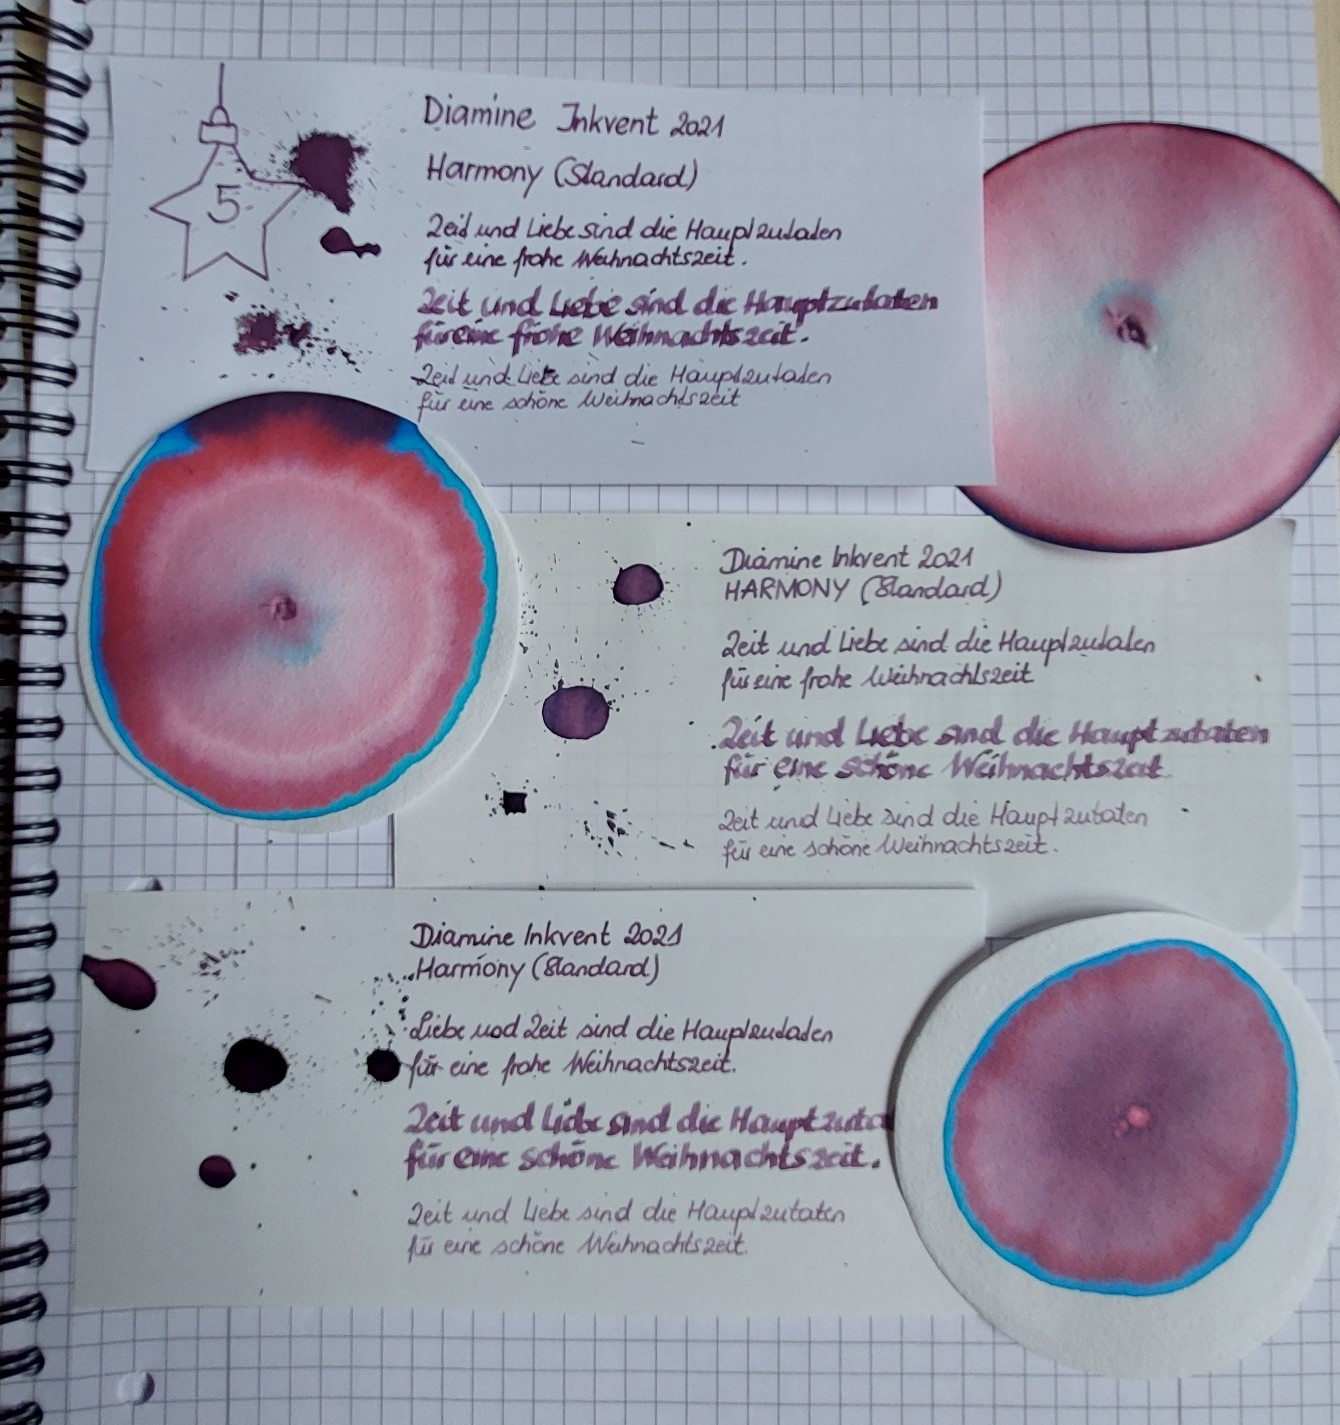 5
Diamine Inkvent 2021
Harmony (Standard)
Zeit und Liebe sind die Hauptzutaten
für eine frohe Weihnachtszeit.
Zeit und Liebe sind die Hauptzutaten
für eine frohe Weihnachtszeit.
Zeit und Liebe sind die Hauptzutaten
für eine schöne Weihnachtszeit
Diamine Inkvent 2021
HARMONY (Standard)
Zeit und Liebe sind die Hauptzutaten
für eine frohe Weihnachtszeit
Zeit und Liebe sind die Hauptzutaten
für eine schöne Weihnachtszeit.
Zeit und Liebe sind die Hauptzutaten
für eine schöne Weihnachtszeit.
Diamine Inkvent 2021
Harmony (Standard)
Liebe und Zeit sind die Hauptzutaten
für eine frohe Weihnachtszeit.
Zeit und Liebe sind die Hauptzuta
für eine schöne Weihnachtszeit.
Zeit und Liebe sind die Hauptzutaten
für eine schöne Weihnachtszeit.